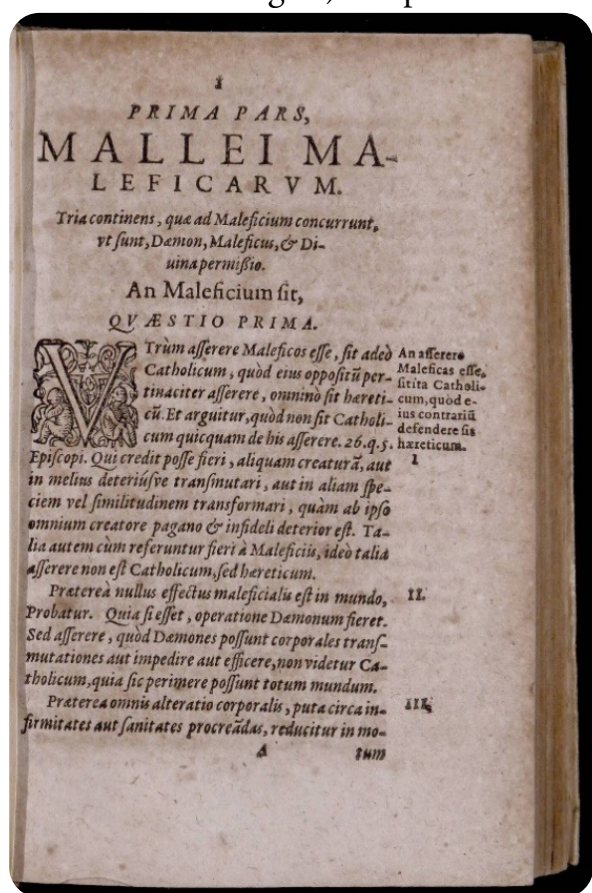 1
PRIMA PARS,
MALLEI MA-
LEFICARVM.
Tria continens, quæ ad Maleficium concurrunt,
vt sunt, Dæmon, Maleficus, & Di-
uina permißio.
An Maleficium sit,
QVÆSTIO PRIMA.
VTrùm asserere Maleficos esse, sit adeò
Catholicum, quòd eius oppositũ per-
tinaciter asserere, omninò sit hæreti-
cũ. Et arguitur, quòd non sit Catholi-
cum quicquam de his asserere. 26. q. 5.
Episcopi. Qui credit posse fieri, aliquam creaturã, aut
in melius deteriúsve transmutari, aut in aliam spe-
ciem vel similitudinem transformari, quàm ab ipso
omnium creatore pagano & infideli deterior est. Ta-
lia autem cùm referuntur fieri à Maleficiis, ideò talia
asserere non est Catholicum, sed hæreticum.
Prætereà nullus effectus maleficialis est in mundo,
Probatur. Quia si esset, operatione Dæmonum fieret.
Sed asserere, quòd Dæmones possunt corporales trans-
mutationes aut impedire aut efficere, non videtur Ca-
tholicum, quia sic perimere possunt totum mundum.
Præterea omnis alteratio corporalis, puta circa in-
firmitates aut sanitates procreãdas, reducitur in mo-
A tum
An asserere
Maleficas esse,
sit ita Catholi-
cum, quòd e-
ius contrariũ
defendere sit
hæreticum.
1
II.
III.